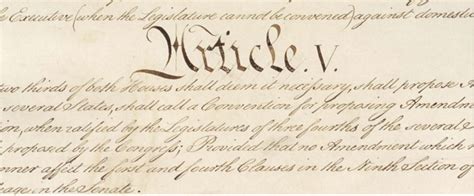 Executive (when the Legislature cannot be convened) against domestic
Article. V.
two thirds of both Houses shall deem it necessary, shall propose
several States, shall call a Convention for proposing Amendm
ion, when ratified by the Legislatures of three fourths of the several
proposed by the Congress; Provided that no Amendment which
nner affect the first and fourth Clauses in the Ninth Section of
age in the Senate.